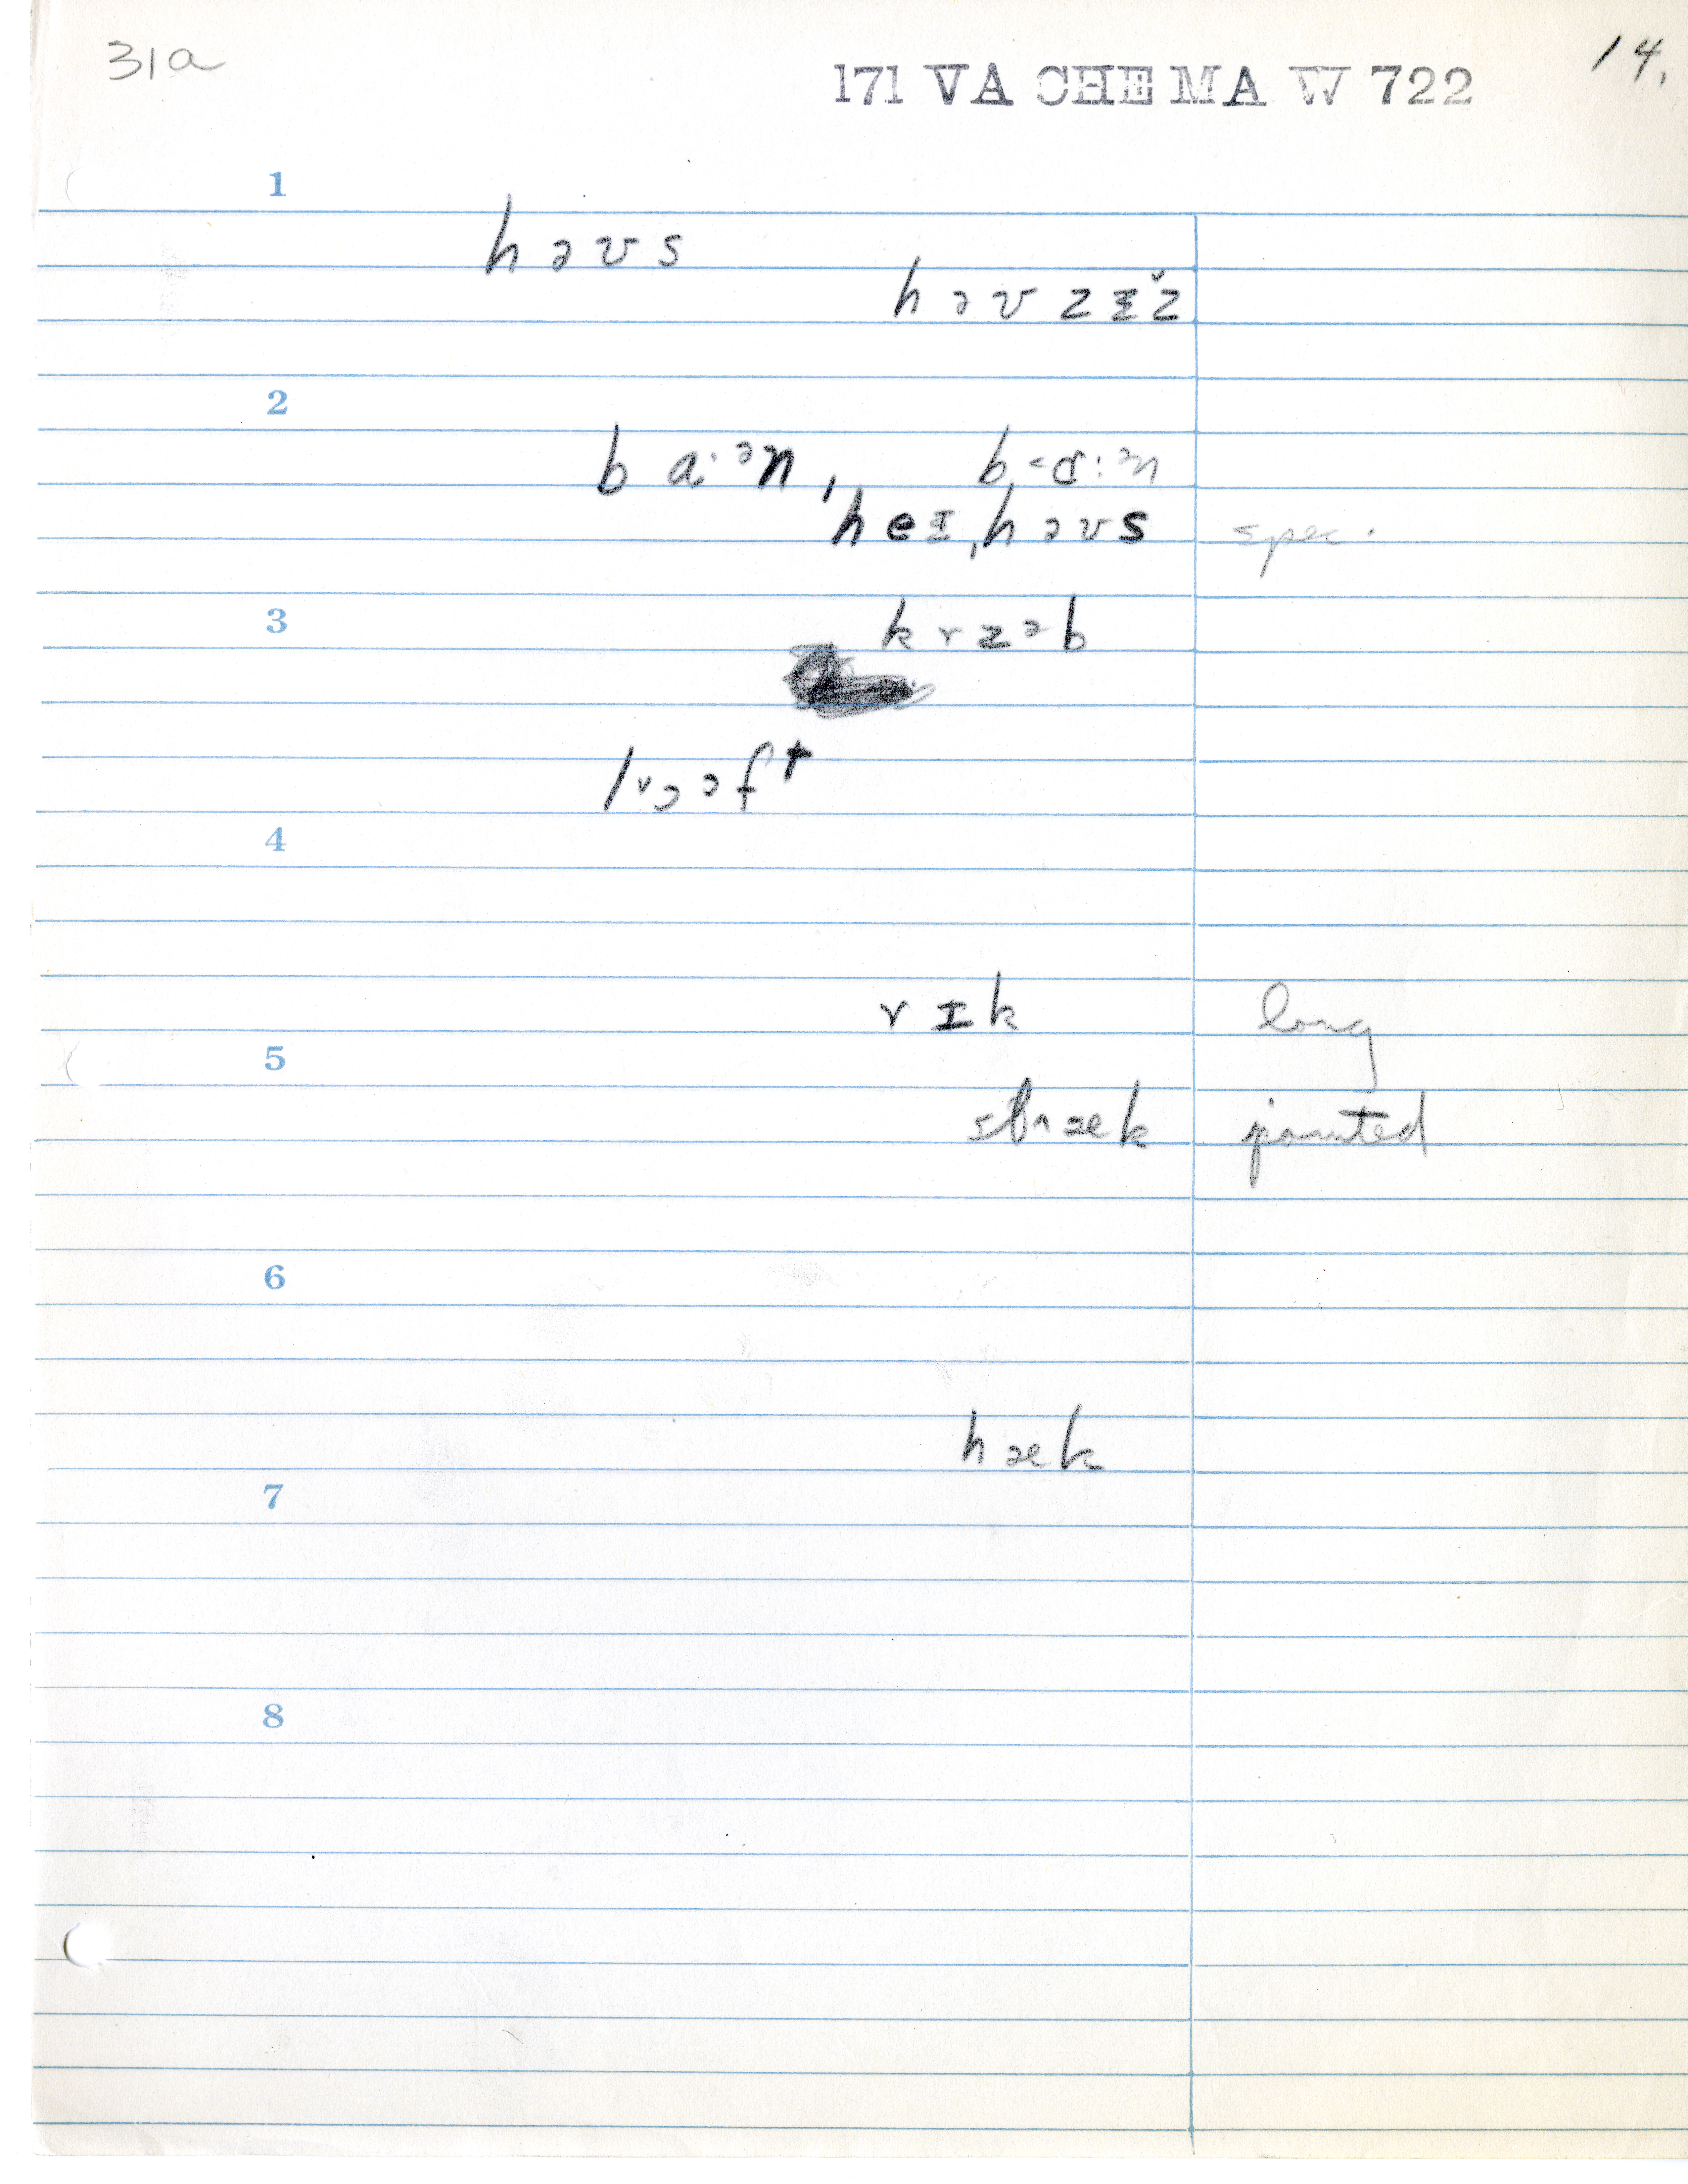 31a
171 VA CHE MA W 722
14.
1
həvs
həvzɪ̌z
2
ba·ᵊn, b<ɑ:ᵊn
heɪˌhəvs spec.
3
krzəb
lɔəft
4
rɪk long
5
stæk pointed
6
hæk
7
8